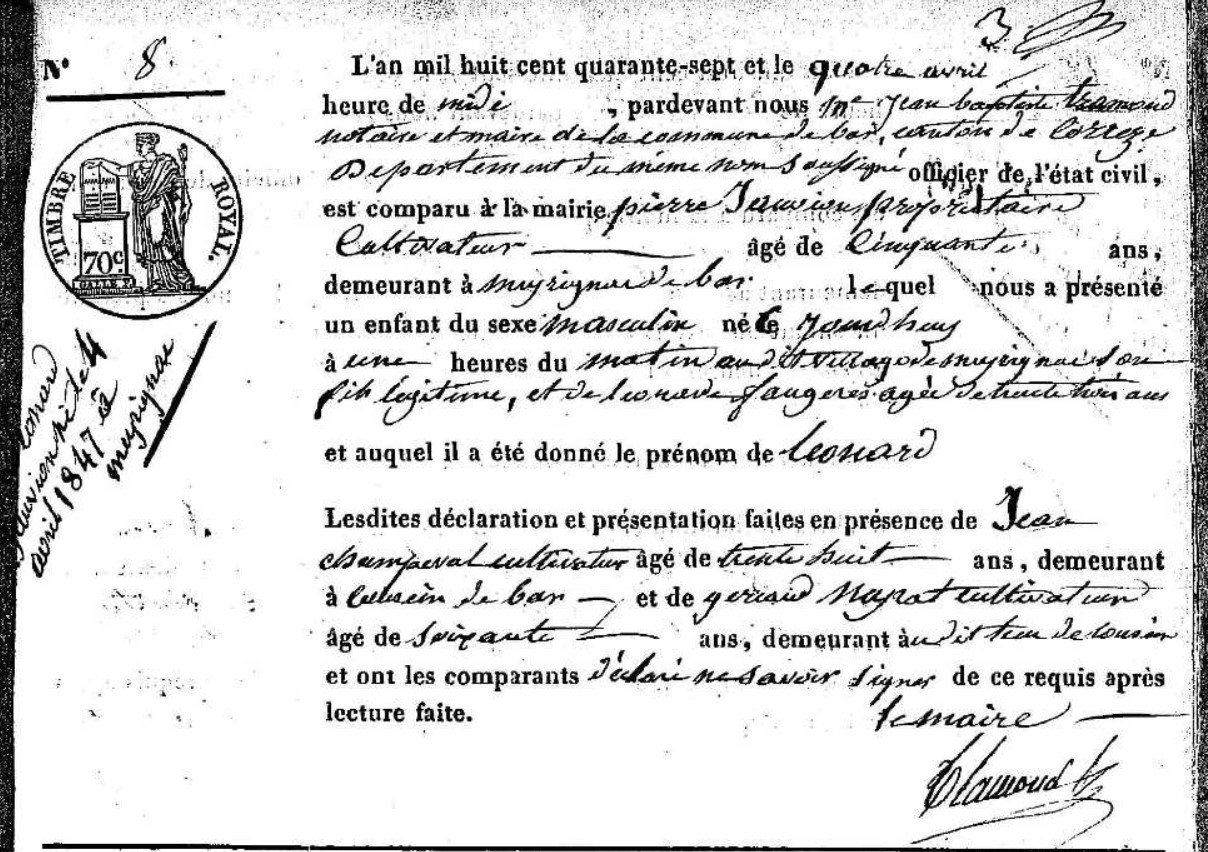 3
N° 8.
L'an mil huit cent quarante-sept et le quatre avril
heure de midi , pardevant nous Me Jean baptiste tramond
notaire et maire de la commune de bar, canton de Correze
Departement du meme nom Soussigné officier de l'état civil,
est comparu à la mairie pierre Jauvion propriétaire
Cultivateur âgé de Cinquante ans,
demeurant à meyrignac de bar lequel nous a présenté
un enfant du sexe masculin né le Jourdhuy
à une heures du matin au dit village de meyrignac de
fils legitime, et de leonarde faugeres agée de trente trois ans
et auquel il a été donné le prénom de leonard
Lesdites déclaration et présentation faites en présence de Jean
champeval cultivateur âgé de trente huit ans, demeurant
à de bar et de gerard cultivateur
âgé de Soixante ans, demeurant au dit lieu de
et ont les comparants déclaré ne savoir signer de ce requis après
lecture faite.
le maire
Tramond
TIMBRE ROYAL.
70c
leonard
jauvion né le 4
avril 1847 à
meyrignac